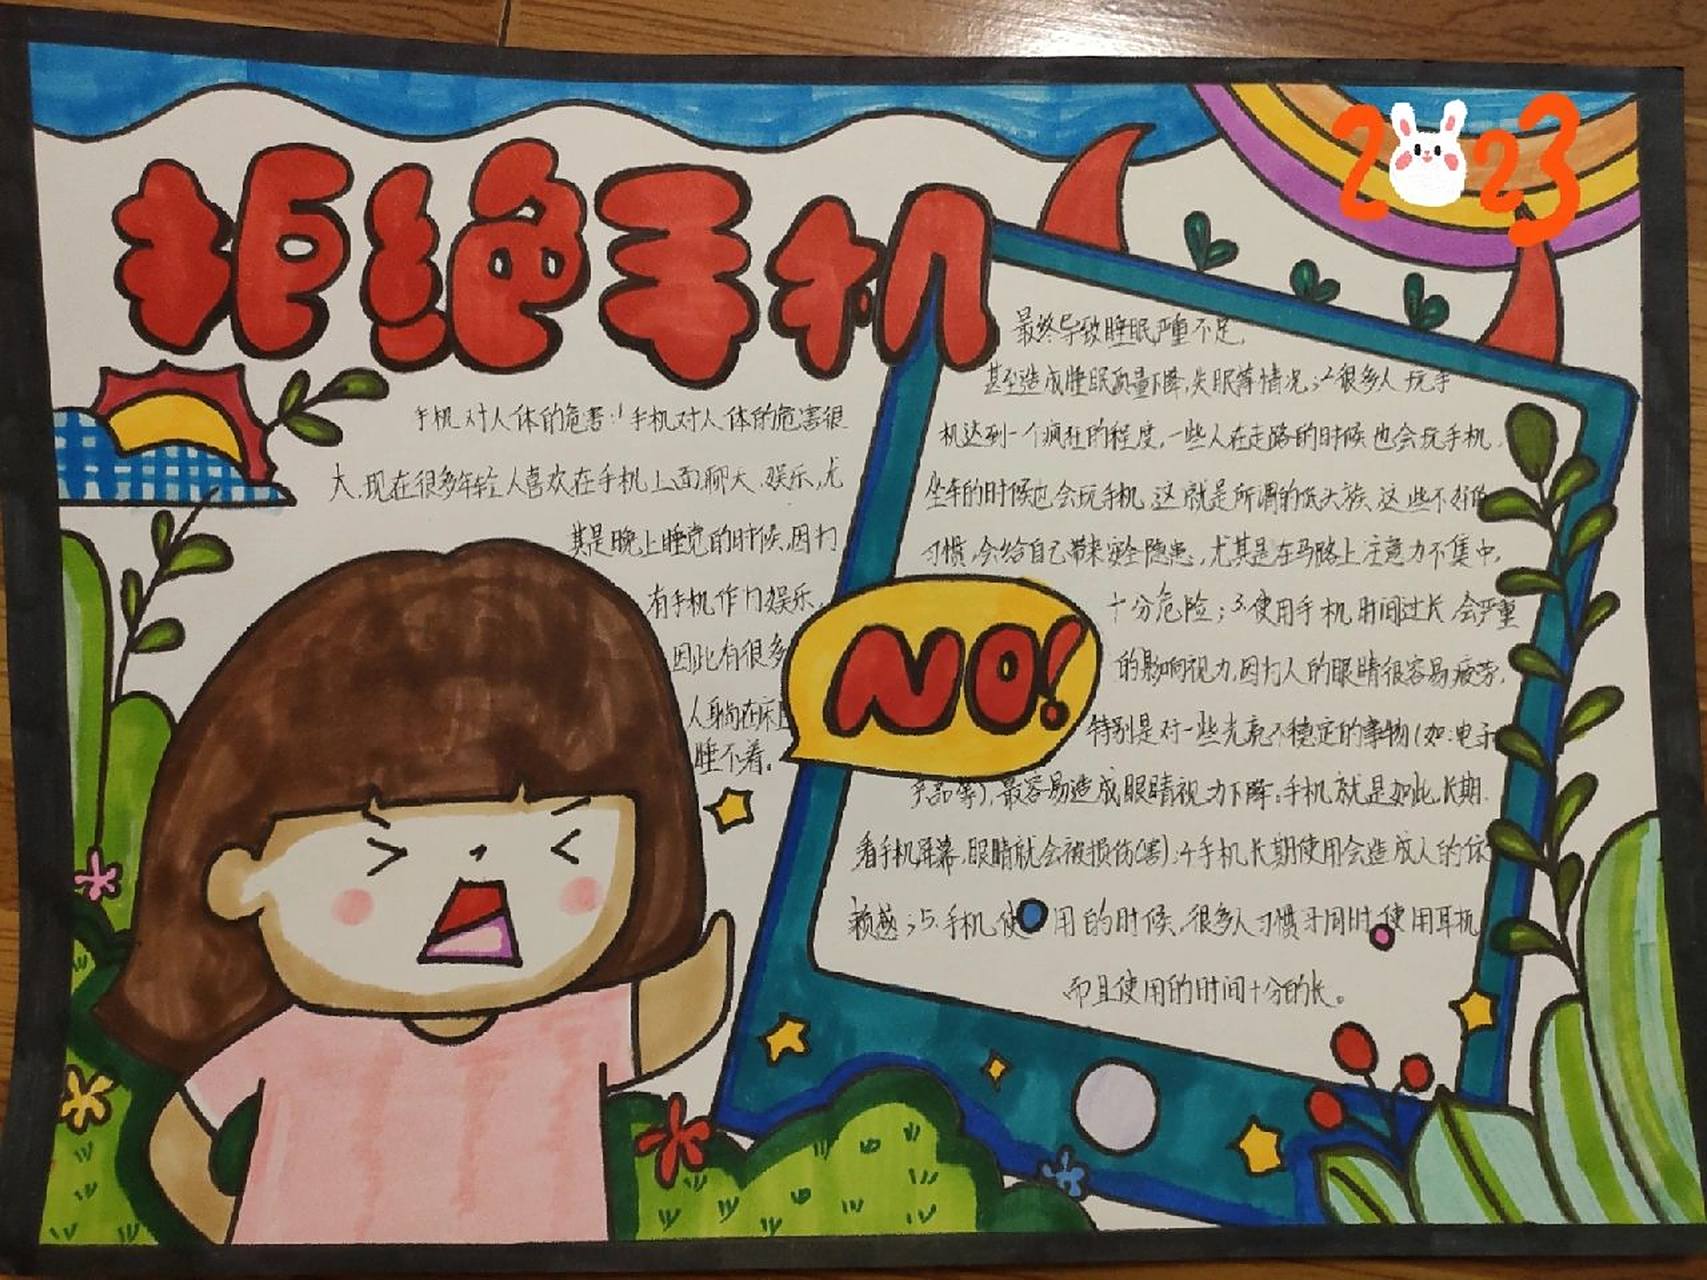 拒绝手机
2023
手机对人体的危害:1手机对人体的危害很
大.现在很多年轻人喜欢在手机上面聊天.娱乐,尤
其是晚上睡觉的时候,因为
有手机作为娱乐,
因此有很多
人躺在床
睡不着.
NO!
最终导致睡眠严重不足,
甚至造成睡眠质量下降,失眠等情况;2很多人玩手
机达到一个疯狂的程度,一些人在走路的时候也会玩手机.
坐车的时候也会玩手机.这就是所谓的低头族.这些不好的
习惯,会给自己带来安全隐患,尤其是在马路上注意力不集中,
十分危险;3.使用手机时间过长会严重
的影响视力,因为人的眼睛很容易疲劳,
特别是对一些光亮不稳定的事物(如:电子
产品等),最容易造成眼睛视力下降.手机就是如此.长期
看手机屏幕,眼睛就会被损伤(害);4手机长期使用会造成人的依
赖感;5.手机使用的时候,很多人习惯于同时使用耳机
而且使用的时间十分的长。